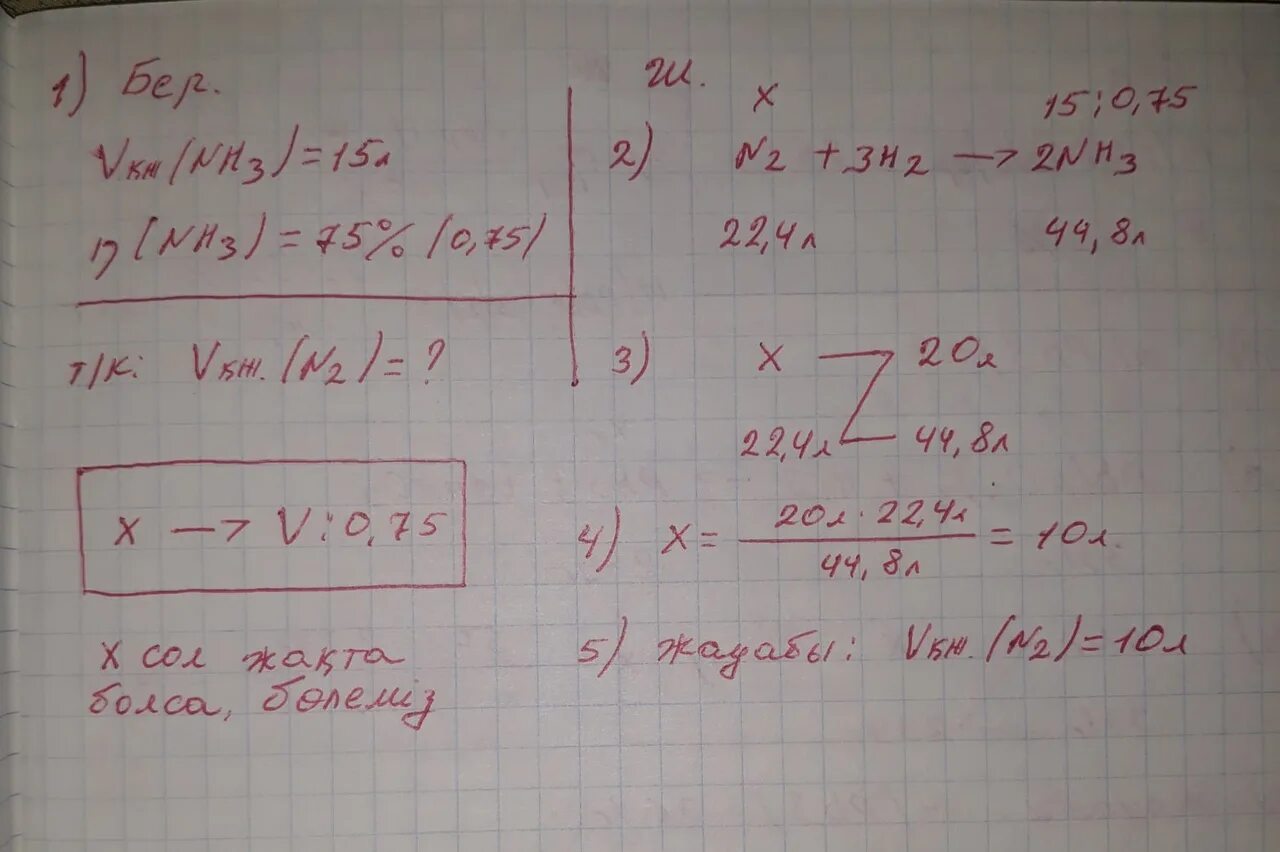 1) Бер.
Vқж(NH3)=15л
η(NH3)=75% (0,75)
т/к: Vқж.(N2)=?
x → V:0,75
x сол жақта
болса, бөлеміз
Ш.
x 15:0,75
2) N2 + 3H2 → 2NH3
22,4л 44,8л
3) x — 20л
22,4л — 44,8л
4) x = 20л · 22,4л / 44,8л = 10л.
5) жауабы: Vқж.(N2)=10л